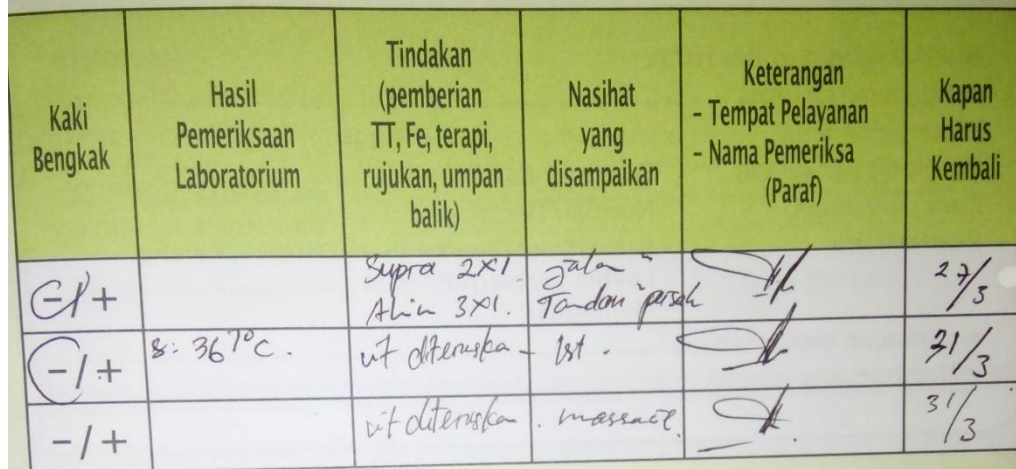 Kaki
Bengkak
Hasil
Pemeriksaan
Laboratorium
Tindakan
(pemberian
TT, Fe, terapi,
rujukan, umpan
balik)
Nasihat
yang
disampaikan
Keterangan
- Tempat Pelayanan
- Nama Pemeriksa
(Paraf)
Kapan
Harus
Kembali
-/+
Supra 2x1
3x1.
Jalan "
27/3
-/+
S: 36⁷°C.
vit diteruska
Ist.
31/3
-/+
vit diteruskan
31/3